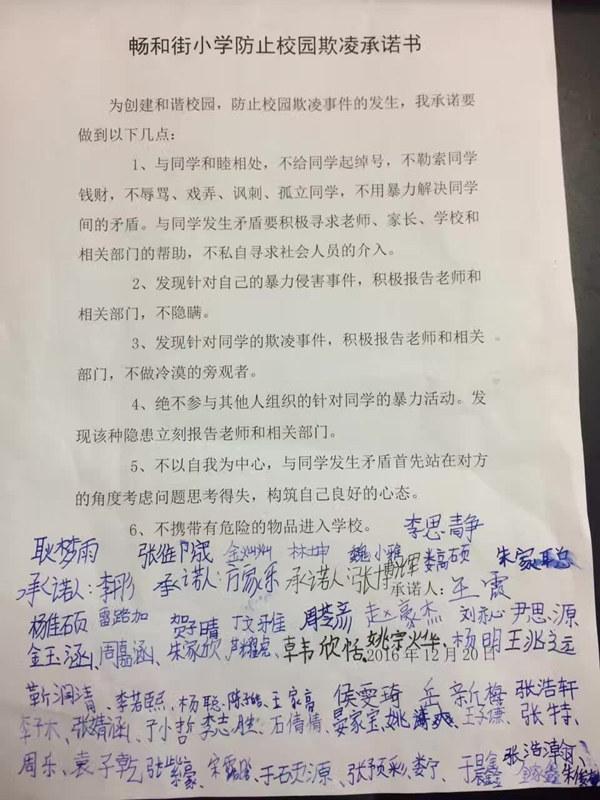 畅和街小学防止校园欺凌承诺书
为创建和谐校园，防止校园欺凌事件的发生，我承诺要
做到以下几点：
1、与同学和睦相处，不给同学起绰号，不勒索同学
钱财，不辱骂、戏弄、讽刺、孤立同学，不用暴力解决同学
间的矛盾。与同学发生矛盾要积极寻求老师、家长、学校和
相关部门的帮助，不私自寻求社会人员的介入。
2、发现针对自己的暴力侵害事件，积极报告老师和
相关部门，不隐瞒。
3、发现针对同学的欺凌事件，积极报告老师和相关
部门，不做冷漠的旁观者。
4、绝不参与其他人组织的针对同学的暴力活动。发
现该种隐患立刻报告老师和相关部门。
5、不以自我为中心，与同学发生矛盾首先站在对方
的角度考虑问题思考得失，构筑自己良好的心态。
6、不携带有危险的物品进入学校。 李思静
耿梦雨 金灿灿 林坤 魏小雅 娄高硕 朱家聪
承诺人：李彤 承诺人：方家乐 承诺人：张博辉 承诺人：王霞
杨雅硕 雷路加 贺子晴 丁文雅 周芝彦 赵豪杰 尹思源
金玉涵、周嘉涵、朱家欣、卓韦欣恬、2016年12月20日 杨明
靳润清、李若熙、杨聪、陈子皓、王家高 侯雯琦 岳新梅 张浩轩
李子木、张婧涵、李志胜、石倩倩、晏家宝、张特、
周乐、袁子乾 张紫豪、张预彩、娄宁、于昌鑫 张浩漳